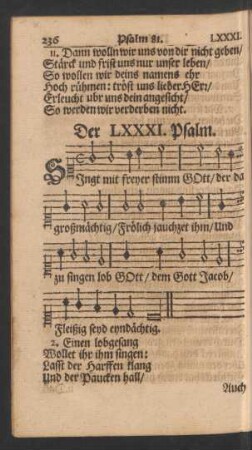 236 Psalm 81. LXXXI.
11. Dann wolln wir uns von dir nicht geben/
Stärck und frist uns nur unser leben/
So wollen wir deins namens ehr
Hoch rühmen: tröst uns lieber HErr/
Erleucht ubr uns dein angesicht/
So werden wir verderben nicht.
Der LXXXI. Psalm.
SIngt mit freyer stimm GOtt/ der da
großmächtig/ Frölich jauchzet ihm/ Und
zu singen lob GOtt/ dem Gott Jacob/
Fleißig seyd eyndächtig.
2. Einen lobgesang
Wollet ihr ihm singen:
Lasst der Harffen klang
Und der Paucken hall/
Auch